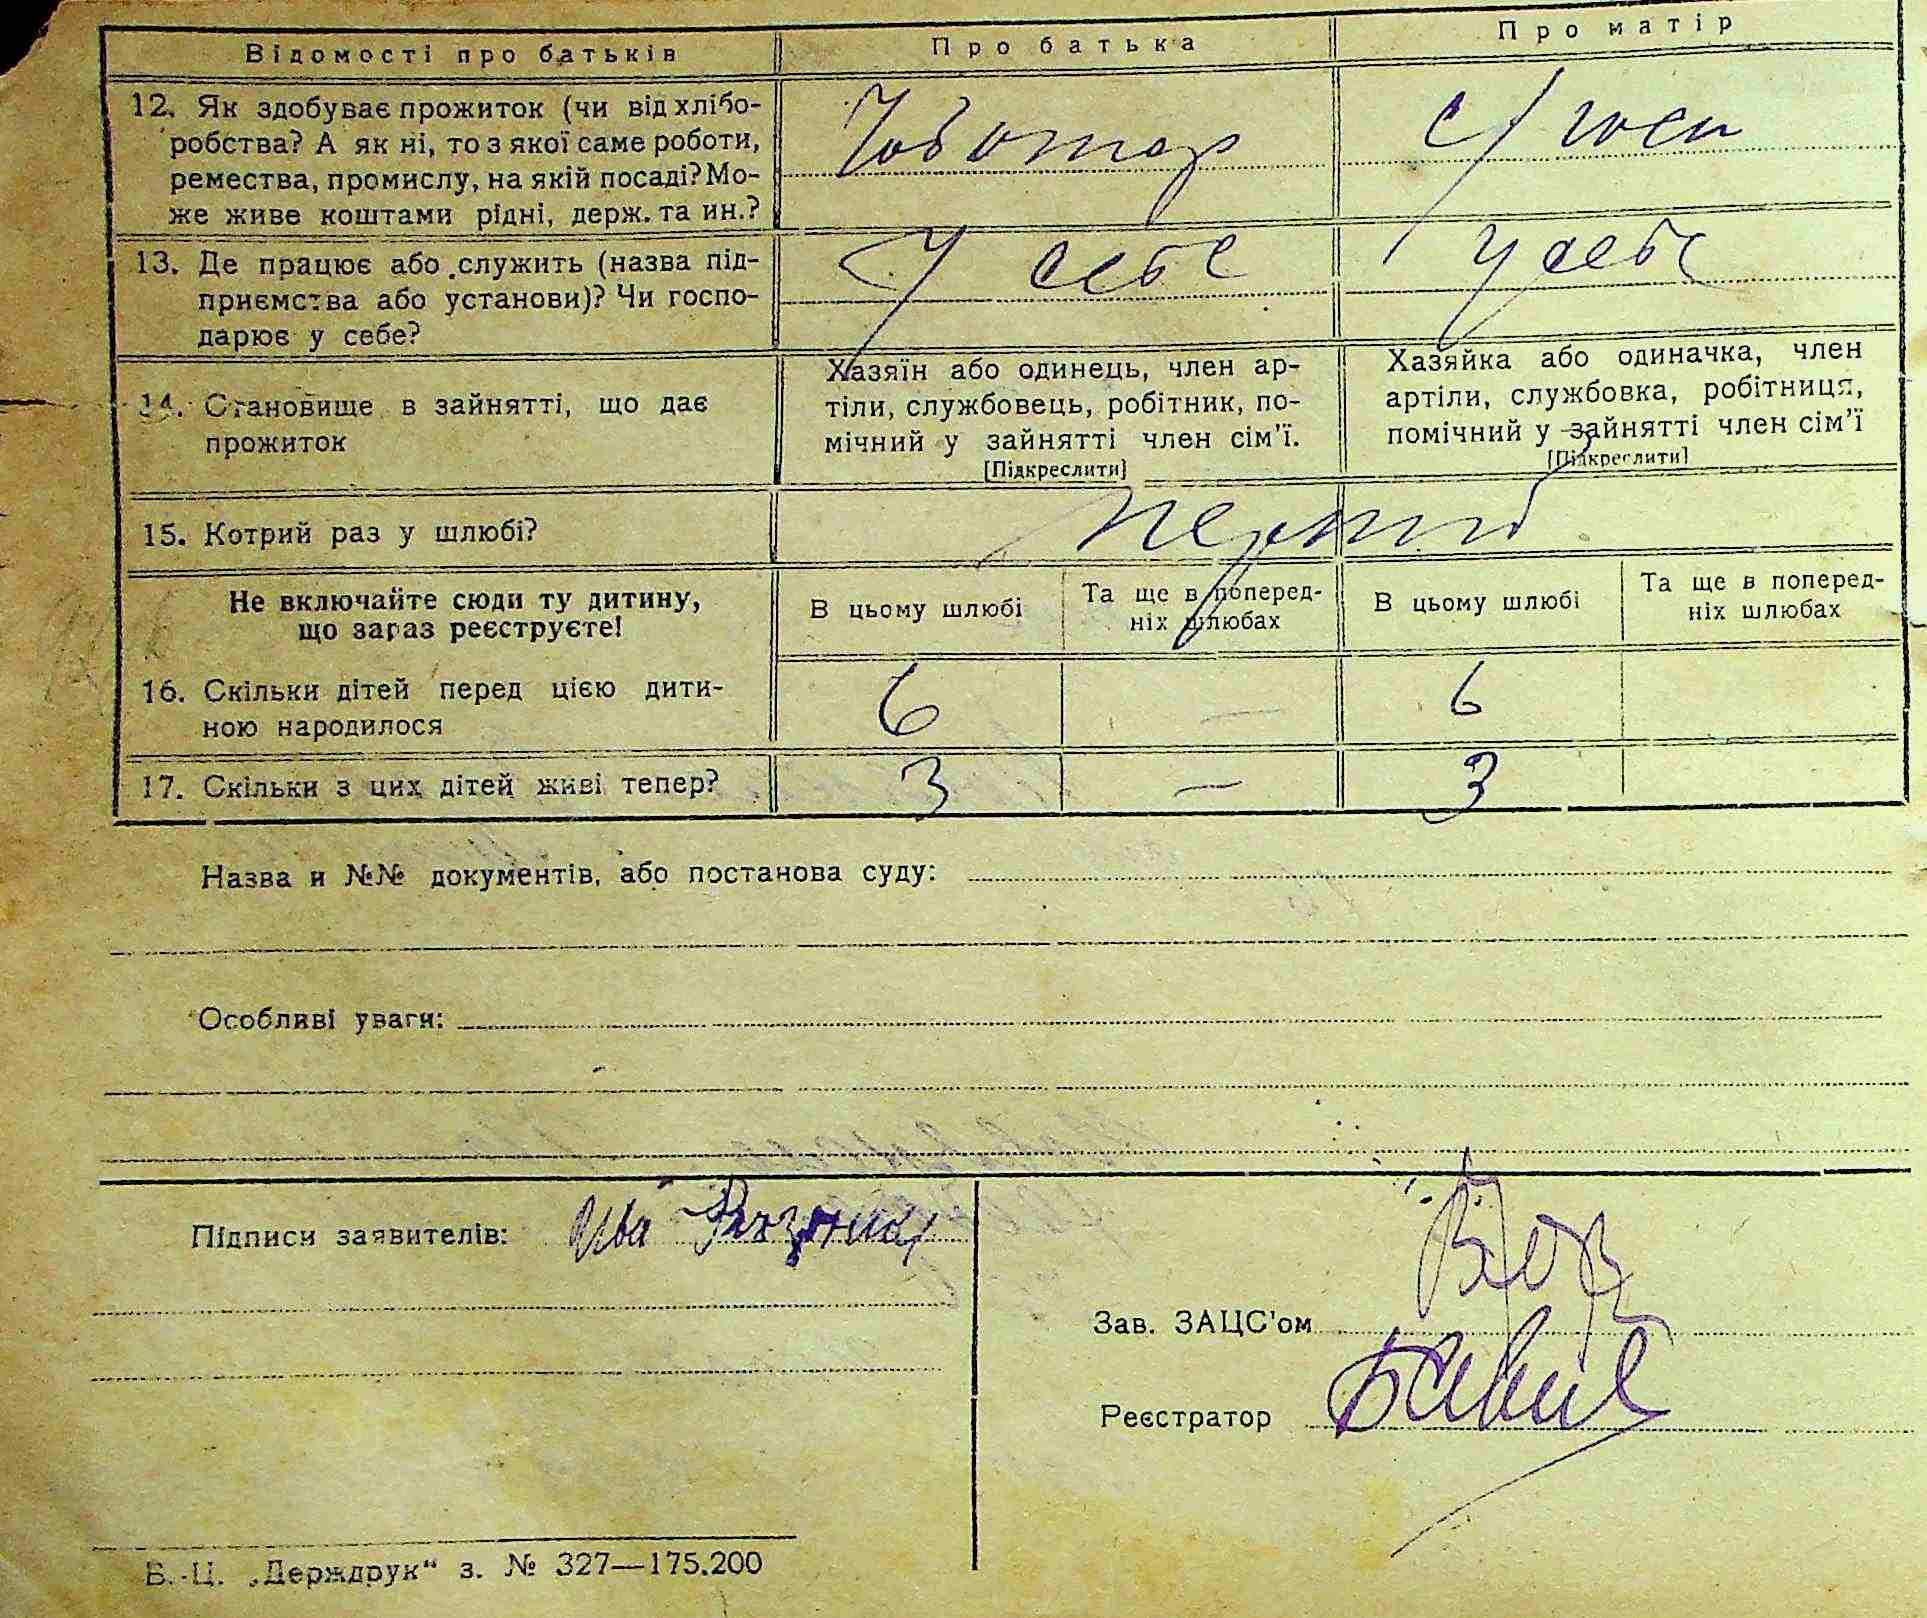 Відомості про батьків Про батька Про матір
12. Як здобуває прожиток (чи від хлібо-
робства? А як ні, то з якої саме роботи,
ремества, промислу, на якій посаді? Мо-
же живе коштами рідні, держ. та ин.?
Чоботар
с/госп
13. Де працює або служить (назва під-
приємства або установи)? Чи госпо-
дарює у себе?
У себе
У себе
14. Становище в зайнятті, що дає
прожиток
Хазяїн або одинець, член ар-
тіли, службовець, робітник, по-
мічний у зайнятті член сім'ї.
[Підкреслити]
Хазяйка або одиначка, член
артіли, службовка, робітниця,
помічний у зайнятті член сім'ї
[Підкреслити]
15. Котрий раз у шлюбі?
Не включайте сюди ту дитину,
що зараз реєструєте!
В цьому шлюбі
Та ще в поперед-
ніх шлюбах
В цьому шлюбі
Та ще в поперед-
ніх шлюбах
16. Скільки дітей перед цією дити-
ною народилося
6 — 6
17. Скільки з цих дітей живі тепер? 3 — 3
Назва и №№ документів, або постанова суду:
Особливі уваги:
Підписи заявителів:
Зав. ЗАЦС'ом
Реєстратор
Б.-Ц. „Держдрук“ з. № 327—175.200